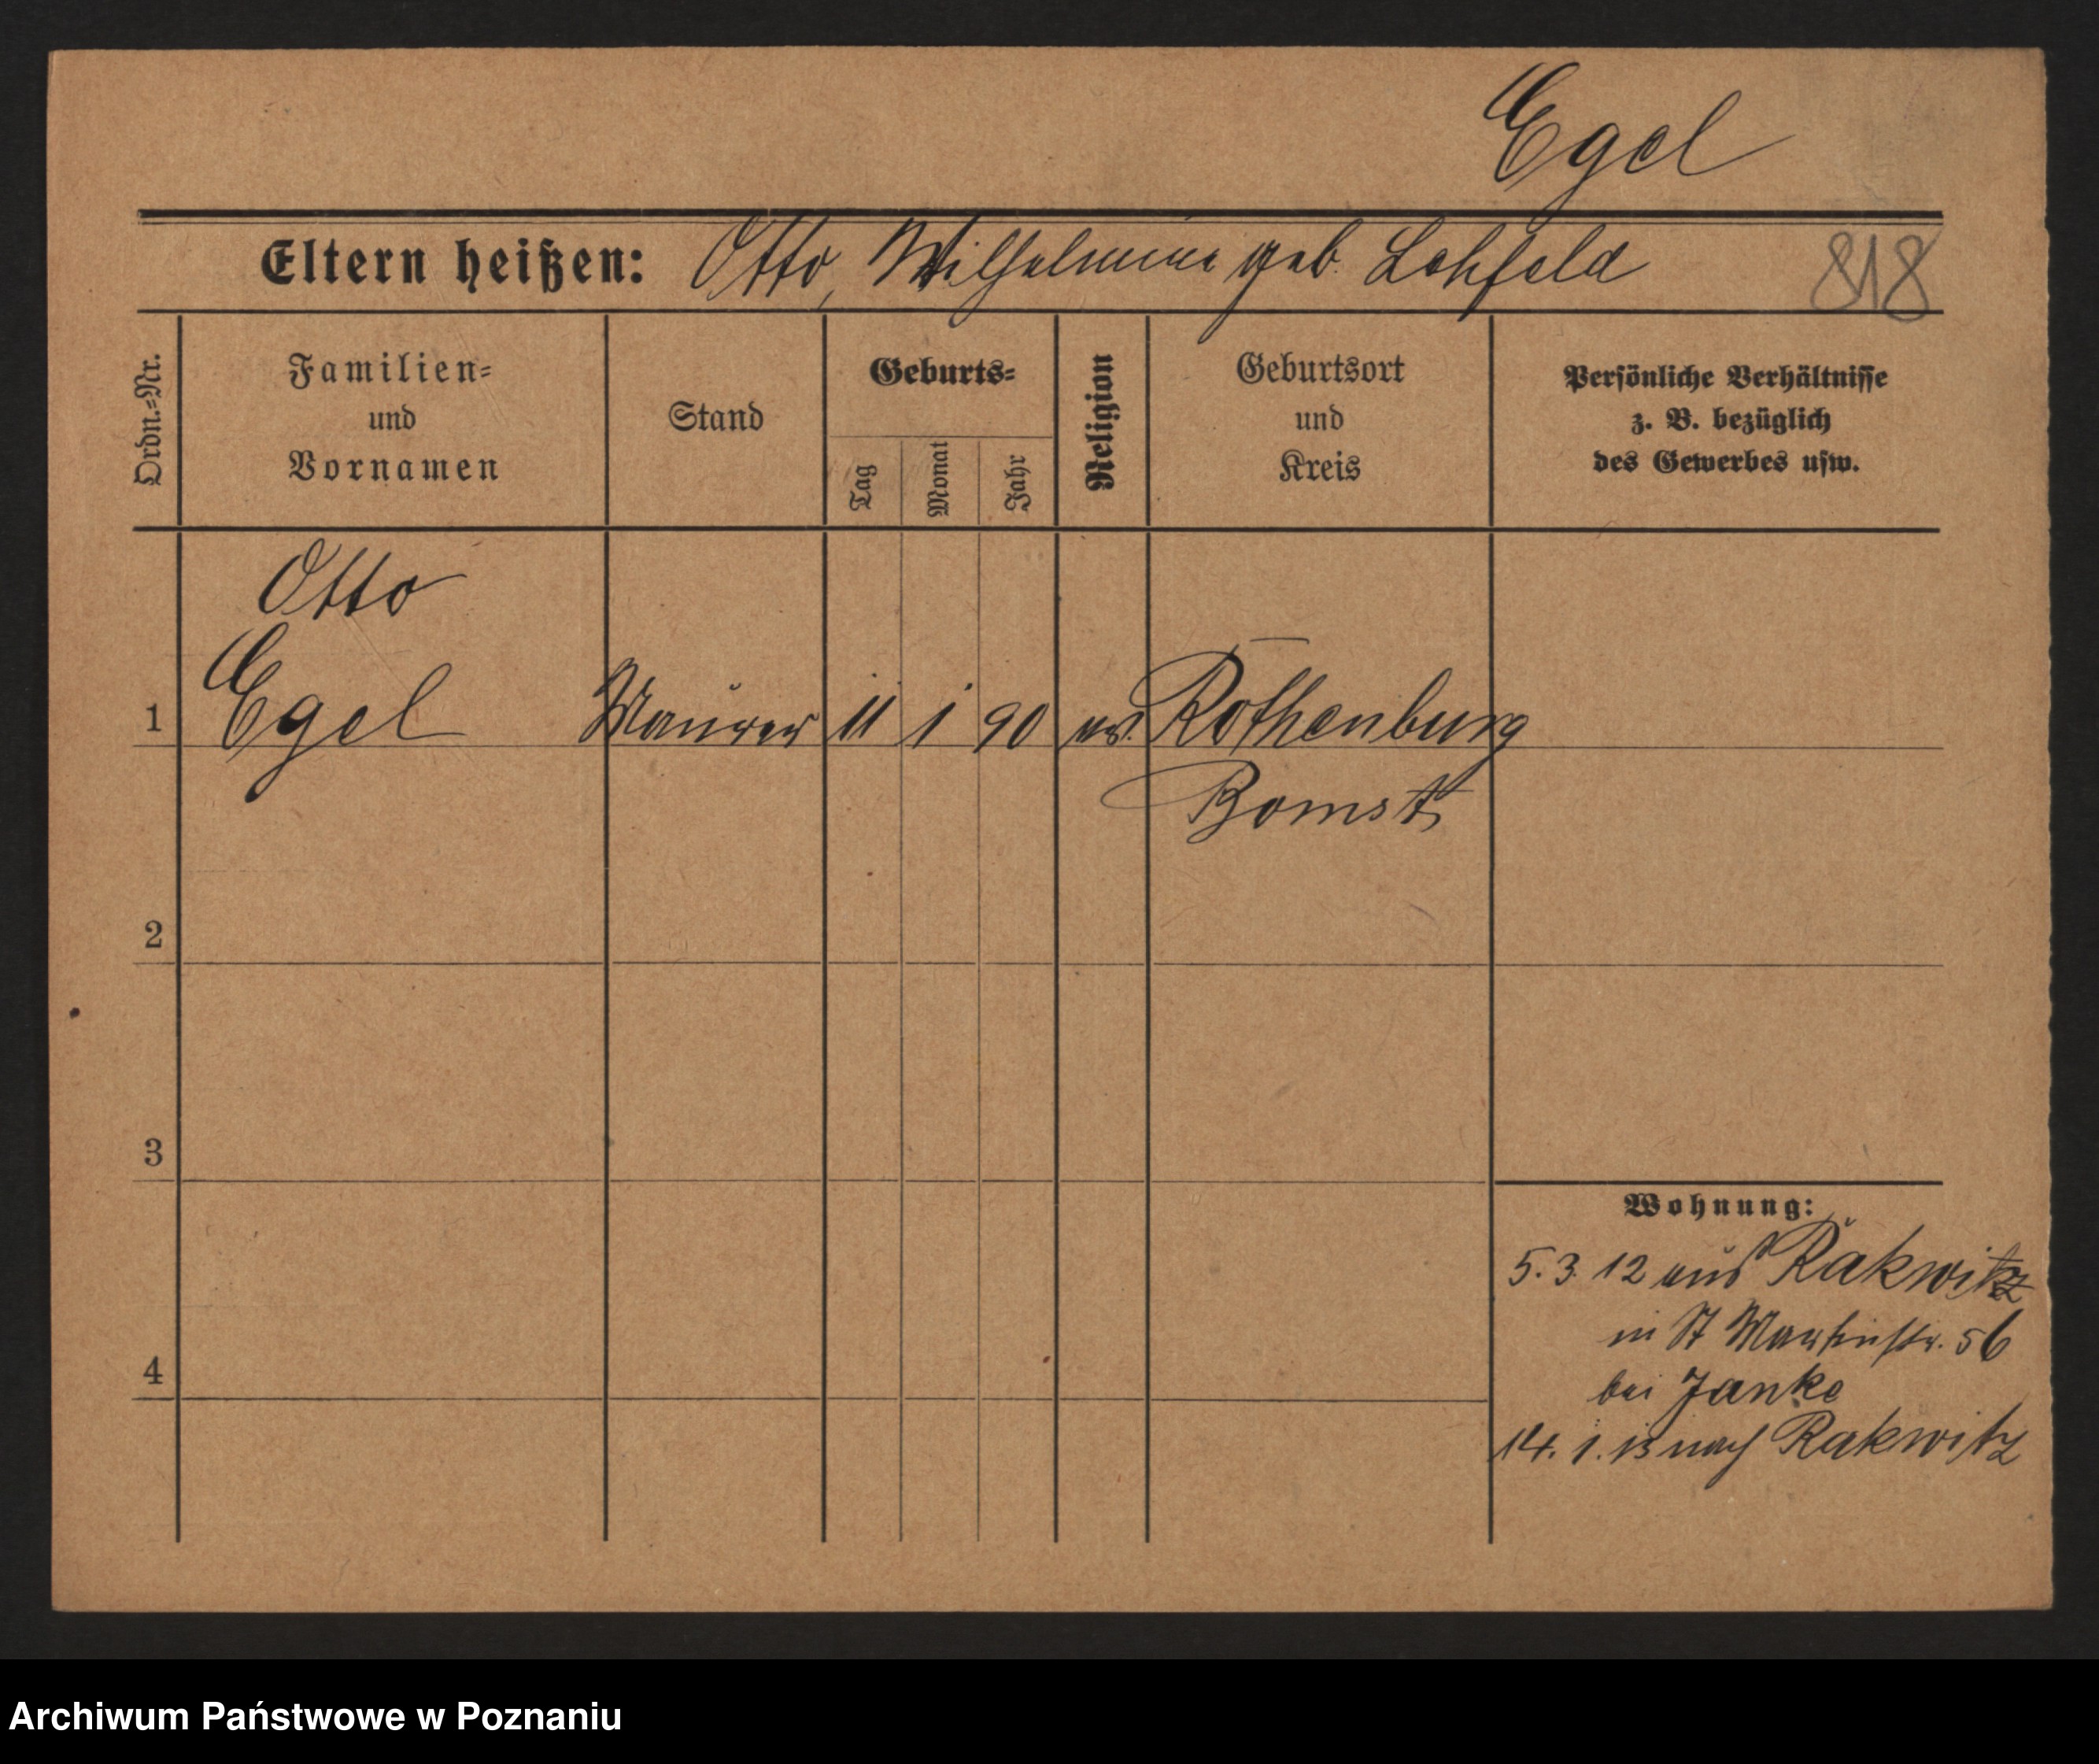 Egel
Eltern heißen: Otto, Wilhelmine geb. Lehfeld
818
Ordn.=Nr.
Familien=
und
Vornamen
Stand
Geburts=
Tag
Monat
Jahr
Religion
Geburtsort
und
Kreis
Persönliche Verhältnisse
z. B. bezüglich
des Gewerbes usw.
Otto
1 Egel Maurer 11 1 90 ev. Rothenburg
Bomst
2
3
4
Wohnung:
5. 3. 12 aus Rakwitz
in St Martinstr. 56
bei Janke
14. 1. 13 nach Rakwitz
Archiwum Państwowe w Poznaniu